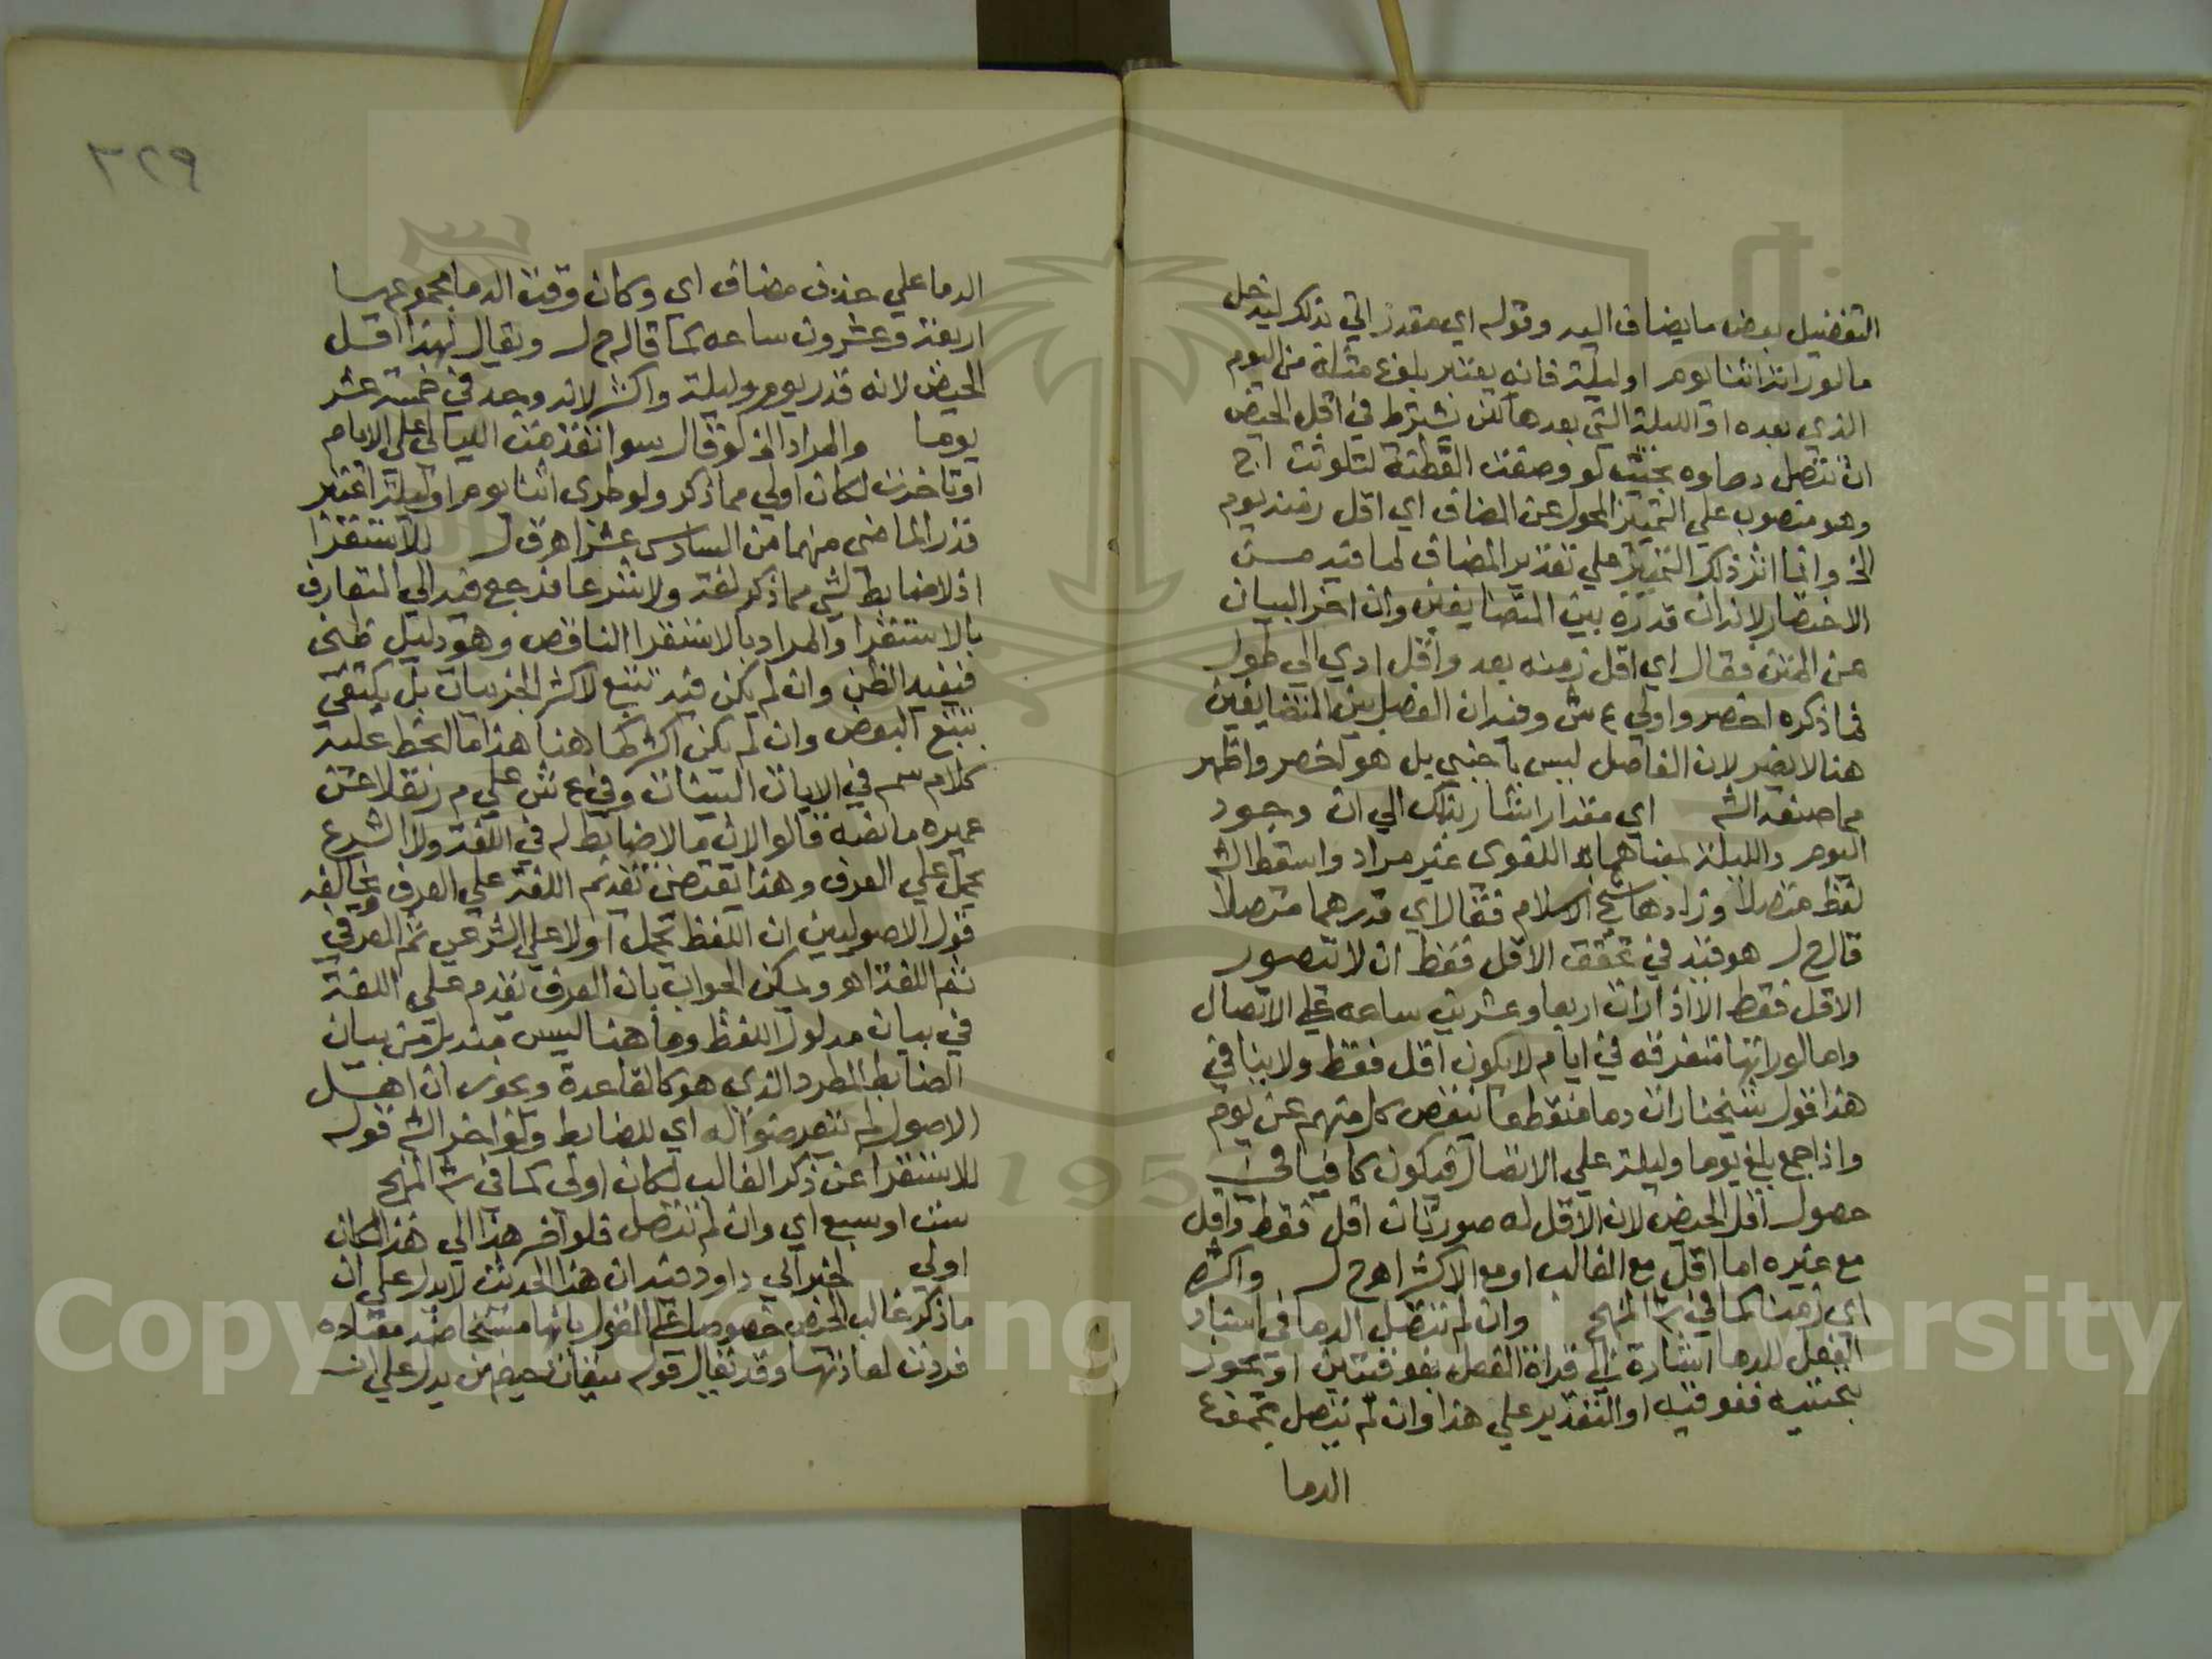 التفضيل بعض ما يضاف اليه وقوله اي مقدر الي ذلك ليدخل
ما لو رات اثنا يوم او ليلة فانه يعتبر بلوغ مثله من اليوم
الذي بعده او الليلة التي بعدها لكن يشترط في اقل الحيض
ان تتصل دماوه بحيث لو وضعت القطنة لتلوثت اج
وهو منصوب علي التمييز المحول عن المضاف اي اقل زمنه يوم
الخ وانما اثر ذكر التمييز علي تقدير المضاف لما فيه من
الاختصار لانه ان قدره بين المتضايفين وان اخر البيان
عن المتن فقال اي اقل زمنه بعد واقل ادي الي طول
فما ذكره اخصر واولي ع ش وفيه ان الفصل بين المتضايفين
هنا لا يضر لان الفاصل ليس باجنبي بل هو اخصر واظهر
مما صنعه الش اي مقدار اشار بذلك الي ان وجود
اليوم والليلة بمعناهما اللغوي غير مراد واسقط الش
لفظ متصلا وزادها شيخ الاسلام فقال اي قدرهما متصلا
قال ح ل هو قيد في تحقق الاقل فقط ان لا يتصور
الاقل فقط الا اذا رات اربعا وعشرين ساعه علي الاتصال
واما لو راتها متفرقه في ايام لا يكون اقل فقط ولا ينافي
هذا قول شيخنا رات دما متقطعا ينقص كل منهم عن يوم
واذا جمع بلغ يوما وليلة علي الاتصال فيكون كافيا في
حصول اقل الحيض لان الاقل له صورتان اقل فقط واقل
مع غيره اما اقل مع الغالب او مع الاكثر اهـ ح ل واكثره
اي زمنا كما في ش المنهج وان لم تتصل الدما في اسناد
الفعل للدما اشارة الي قراة الفعل بفوقيتين او يجوز
بتحتيه ففوقيه او التقدير علي هذا وان لم يتصل مجموع
الدما
٣٢٩
الدما علي حذف مضاف اي وكان وقت الدما مجموعها
اربعة وعشرون ساعه كما قاله ح ل ويقال لهذا اقل
الحيض لانه قدر يوم وليلة واكثر لانه وجد في خمسة عشر
يوما والمراد الخ لو قال سوا تقدمت الليالي علي الايام
او تاخرت لكان اولي مما ذكر ولو طري اثنا يوم او ليلة اعتبر
قدر الماضي منهما من السادس عشر اهـ ق ل للاستقرا
اذ لا ضابط لشي مما ذكر لغة ولا شرعا فرجع فيه الي المتعارف
بالاستقرا والمراد بالاستقرا الناقص وهو دليل ظني
فيفيد الظن وان لم يكن فيه تتبع لاكثر الجزييات بل يكتفي
بتتبع البعض وان لم يكن اكثر كما هنا هذا ما انحط عليه
كلام سم في الايات البينات وفي ع ش علي م ر نقلا عن
عميره ما نصه قالوا لان ما لا ضابط له في اللغة ولا الشرع
يحمل علي العرف وهذا يقتضي تقديم اللغة علي العرف ويخالفه
قول الاصوليين ان اللفظ يحمل اولا علي الشرعي ثم العرفي
ثم اللغة اهـ ويمكن الجواب بان العرف يقدم علي اللغة
في بيان مدلول اللفظ وما هنا ليس منه بل من بيان
الضابط المطرد الذي هو كالقاعدة ويجوز ان اهل
الاصول لم يتعرضوا له اي للضابط ولو اخر الش قوله
للاستقرا عن ذكر الغالب لكان اولي كما في ش المنهج
ست او سبع اي وان لم تتصل فلو اخر هذا الي هذا لكان
اولي لخبر ابي داود فيه ان هذا الحديث لا يدل علي ان
ما ذكر غالب الحيض خصوصا علي القول بانها مستحاضه معتاده
فردت لعادتها وقد يقال قوله ميقات حيضهن يدل علي ان